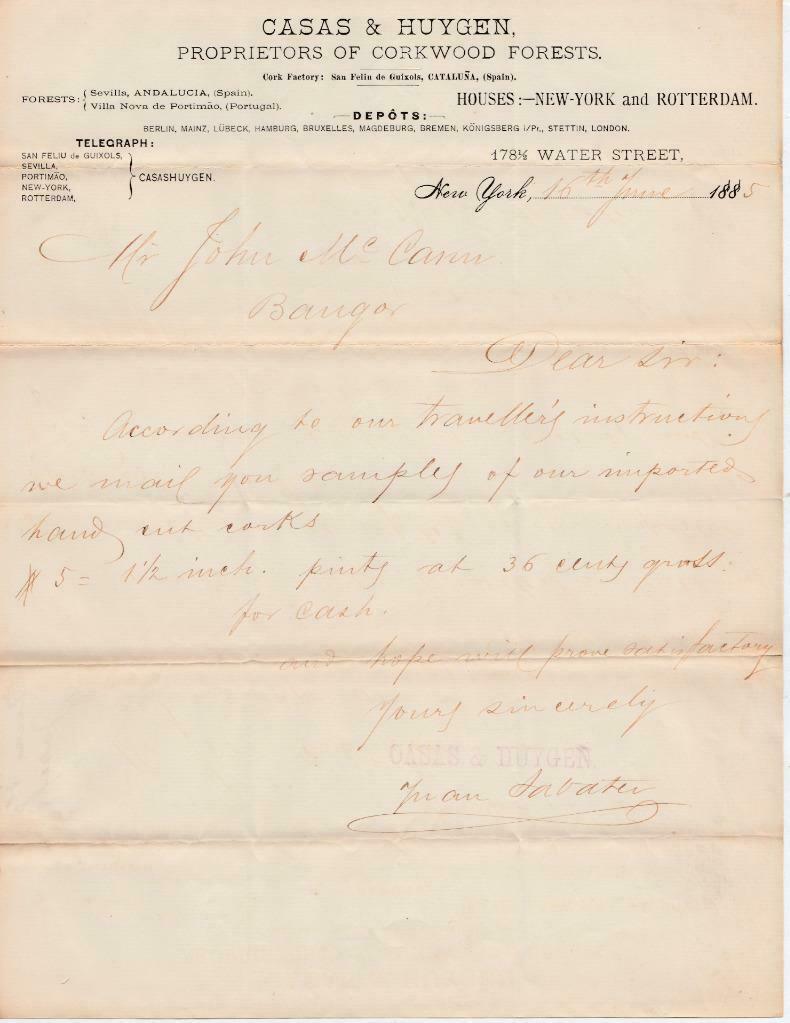 CASAS & HUYGEN,
PROPRIETORS OF CORKWOOD FORESTS.
Cork Factory: San Feliu de Guixols, CATALUÑA, (Spain).
FORESTS: { Sevilla, ANDALUCIA, (Spain).
Villa Nova de Portimão, (Portugal).
HOUSES:—NEW-YORK and ROTTERDAM.
DEPÔTS:
BERLIN, MAINZ, LÜBECK, HAMBURG, BRUXELLES, MAGDEBURG, BREMEN, KÖNIGSBERG i/Pr., STETTIN, LONDON.
TELEGRAPH:
SAN FELIU de GUIXOLS,
SEVILLA,
PORTIMÃO,
NEW-YORK,
ROTTERDAM,
} CASASHUYGEN.
178½ WATER STREET,
New York, 16th of June 1885
Mr John McCann
Bangor
Dear Sir:
According to our traveller's instructions
we mail you samples of our imported
hand cut corks
5 = 1 1/2 inch. pints at 36 cents gross.
for cash.
and hope will prove satisfactory
Yours sincerely
CASAS & HUYGEN.
Juan Sabater